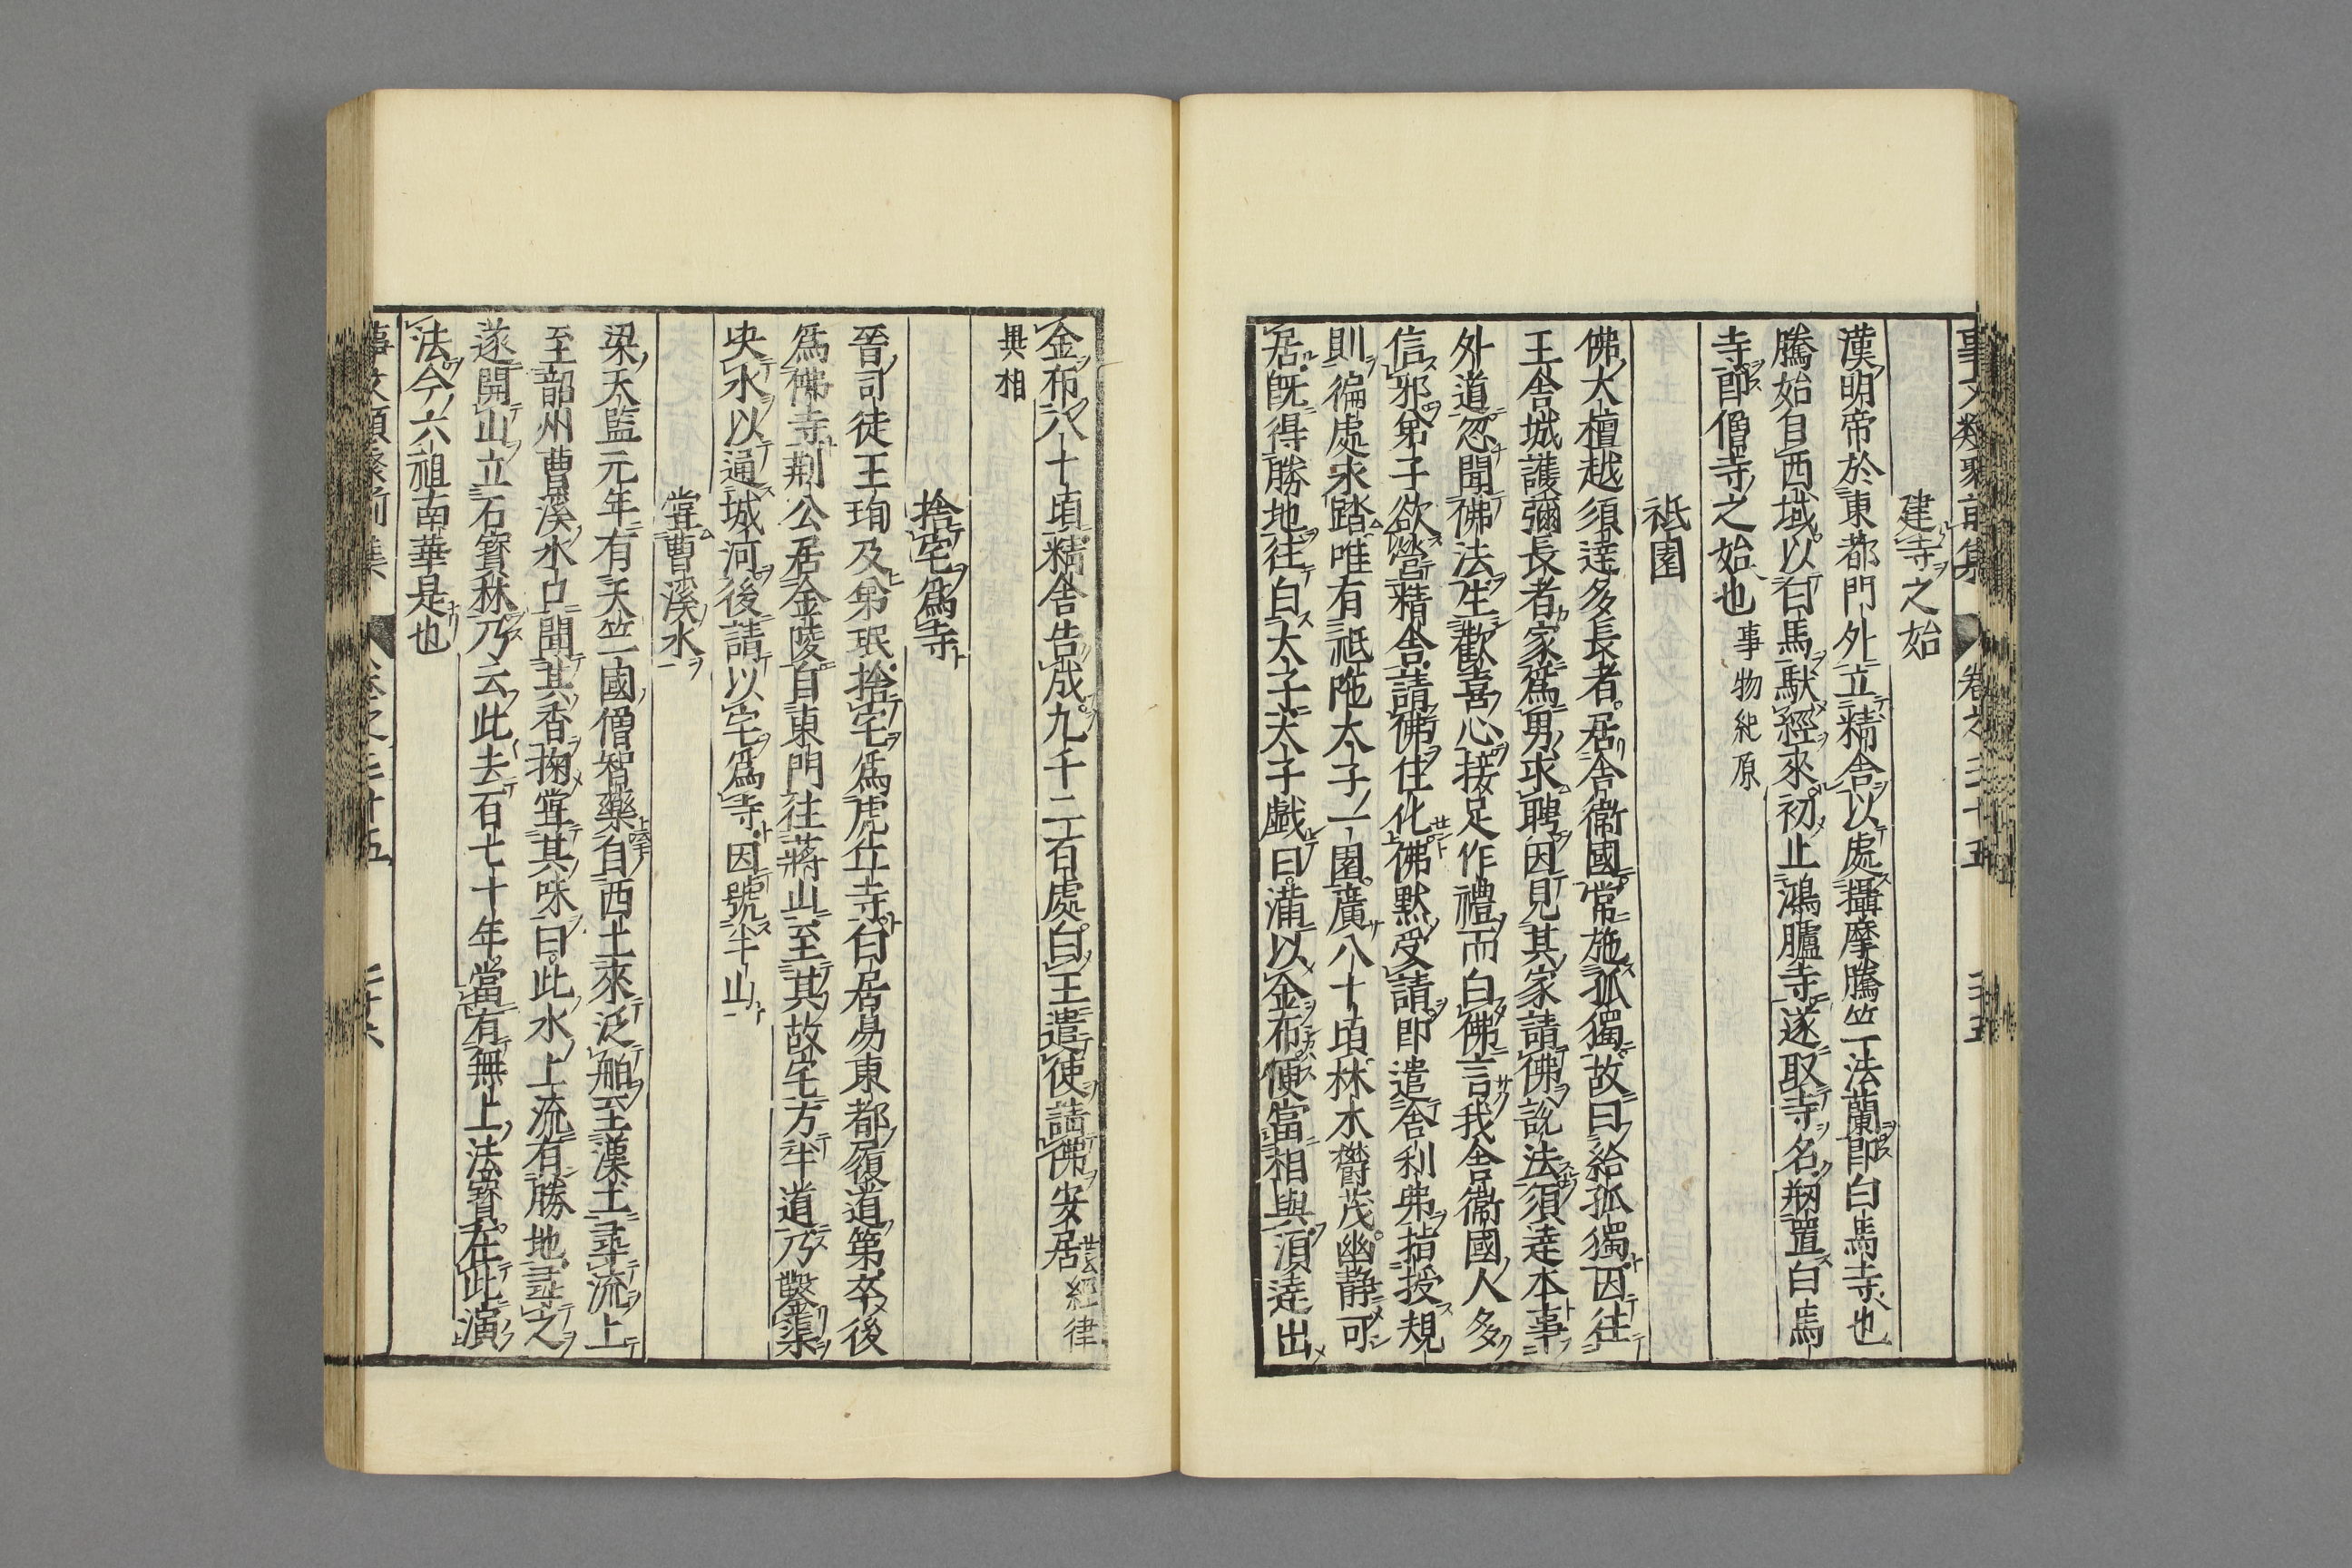 事文類聚前集 卷之三十五 三十五
建寺之始
漢明帝於東都門外立精舍以處攝摩騰竺法蘭即白馬寺也
騰始自西域以白馬馱經來初止鴻臚寺遂取寺名剏置白馬
寺即僧寺之始也事物紀原
祇園
佛大檀越須達多長者居舍衞國常施孤獨故曰給孤獨因往
王舍城護彌長者家爲男求聘因見其家請佛說法須達本事
外道忽聞佛法生歡喜心接足作禮而白佛言我舍衞國人多
信邪弟子欲營精舍請佛住化佛默受請即遣舍利弗指授規
則徧處求踏唯有祇陁太子一園廣八十頃林木欝茂幽静可
居旣得勝地往白太子太子戲曰滿以金布便當相與須達出
金布八十頃精舍告成九千二百處白王遣使請佛安居經律
異相
捨宅爲寺
晉司徒王珣及弟珉捨宅爲虎丘寺白居易東都履道第卒後
爲佛寺荆公居金陵自東門往蔣山至其故宅方半道乃鑿渠
决水以通城河後請以宅爲寺因號半山
甞曹溪水
梁天監元年有天竺國僧智藥自西土來泛舶至漢土尋流上
至韶州曹溪水口聞其香掬甞其味曰此水上流有勝地尋之
遂開山立石寳林乃云此去百七十年當有無上法寳在此演
法今六祖南華是也
事文類聚前集 卷之三十五 三十六